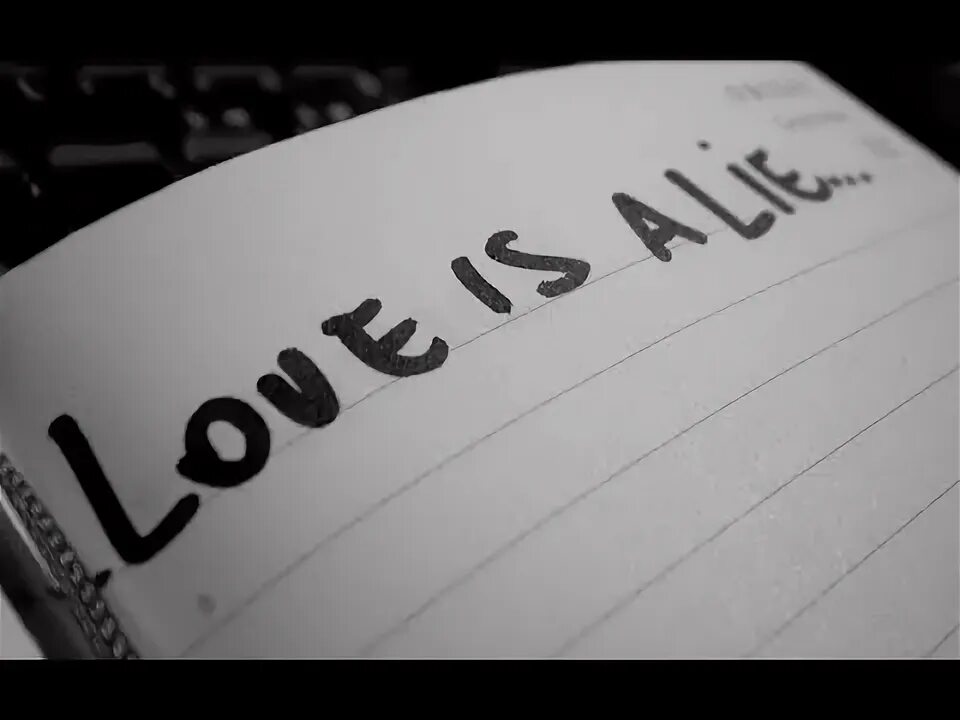 LOVE IS A LIE...